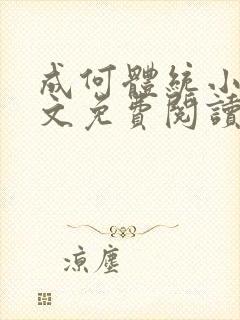 成何體統小
文免費閱讀
涼塵